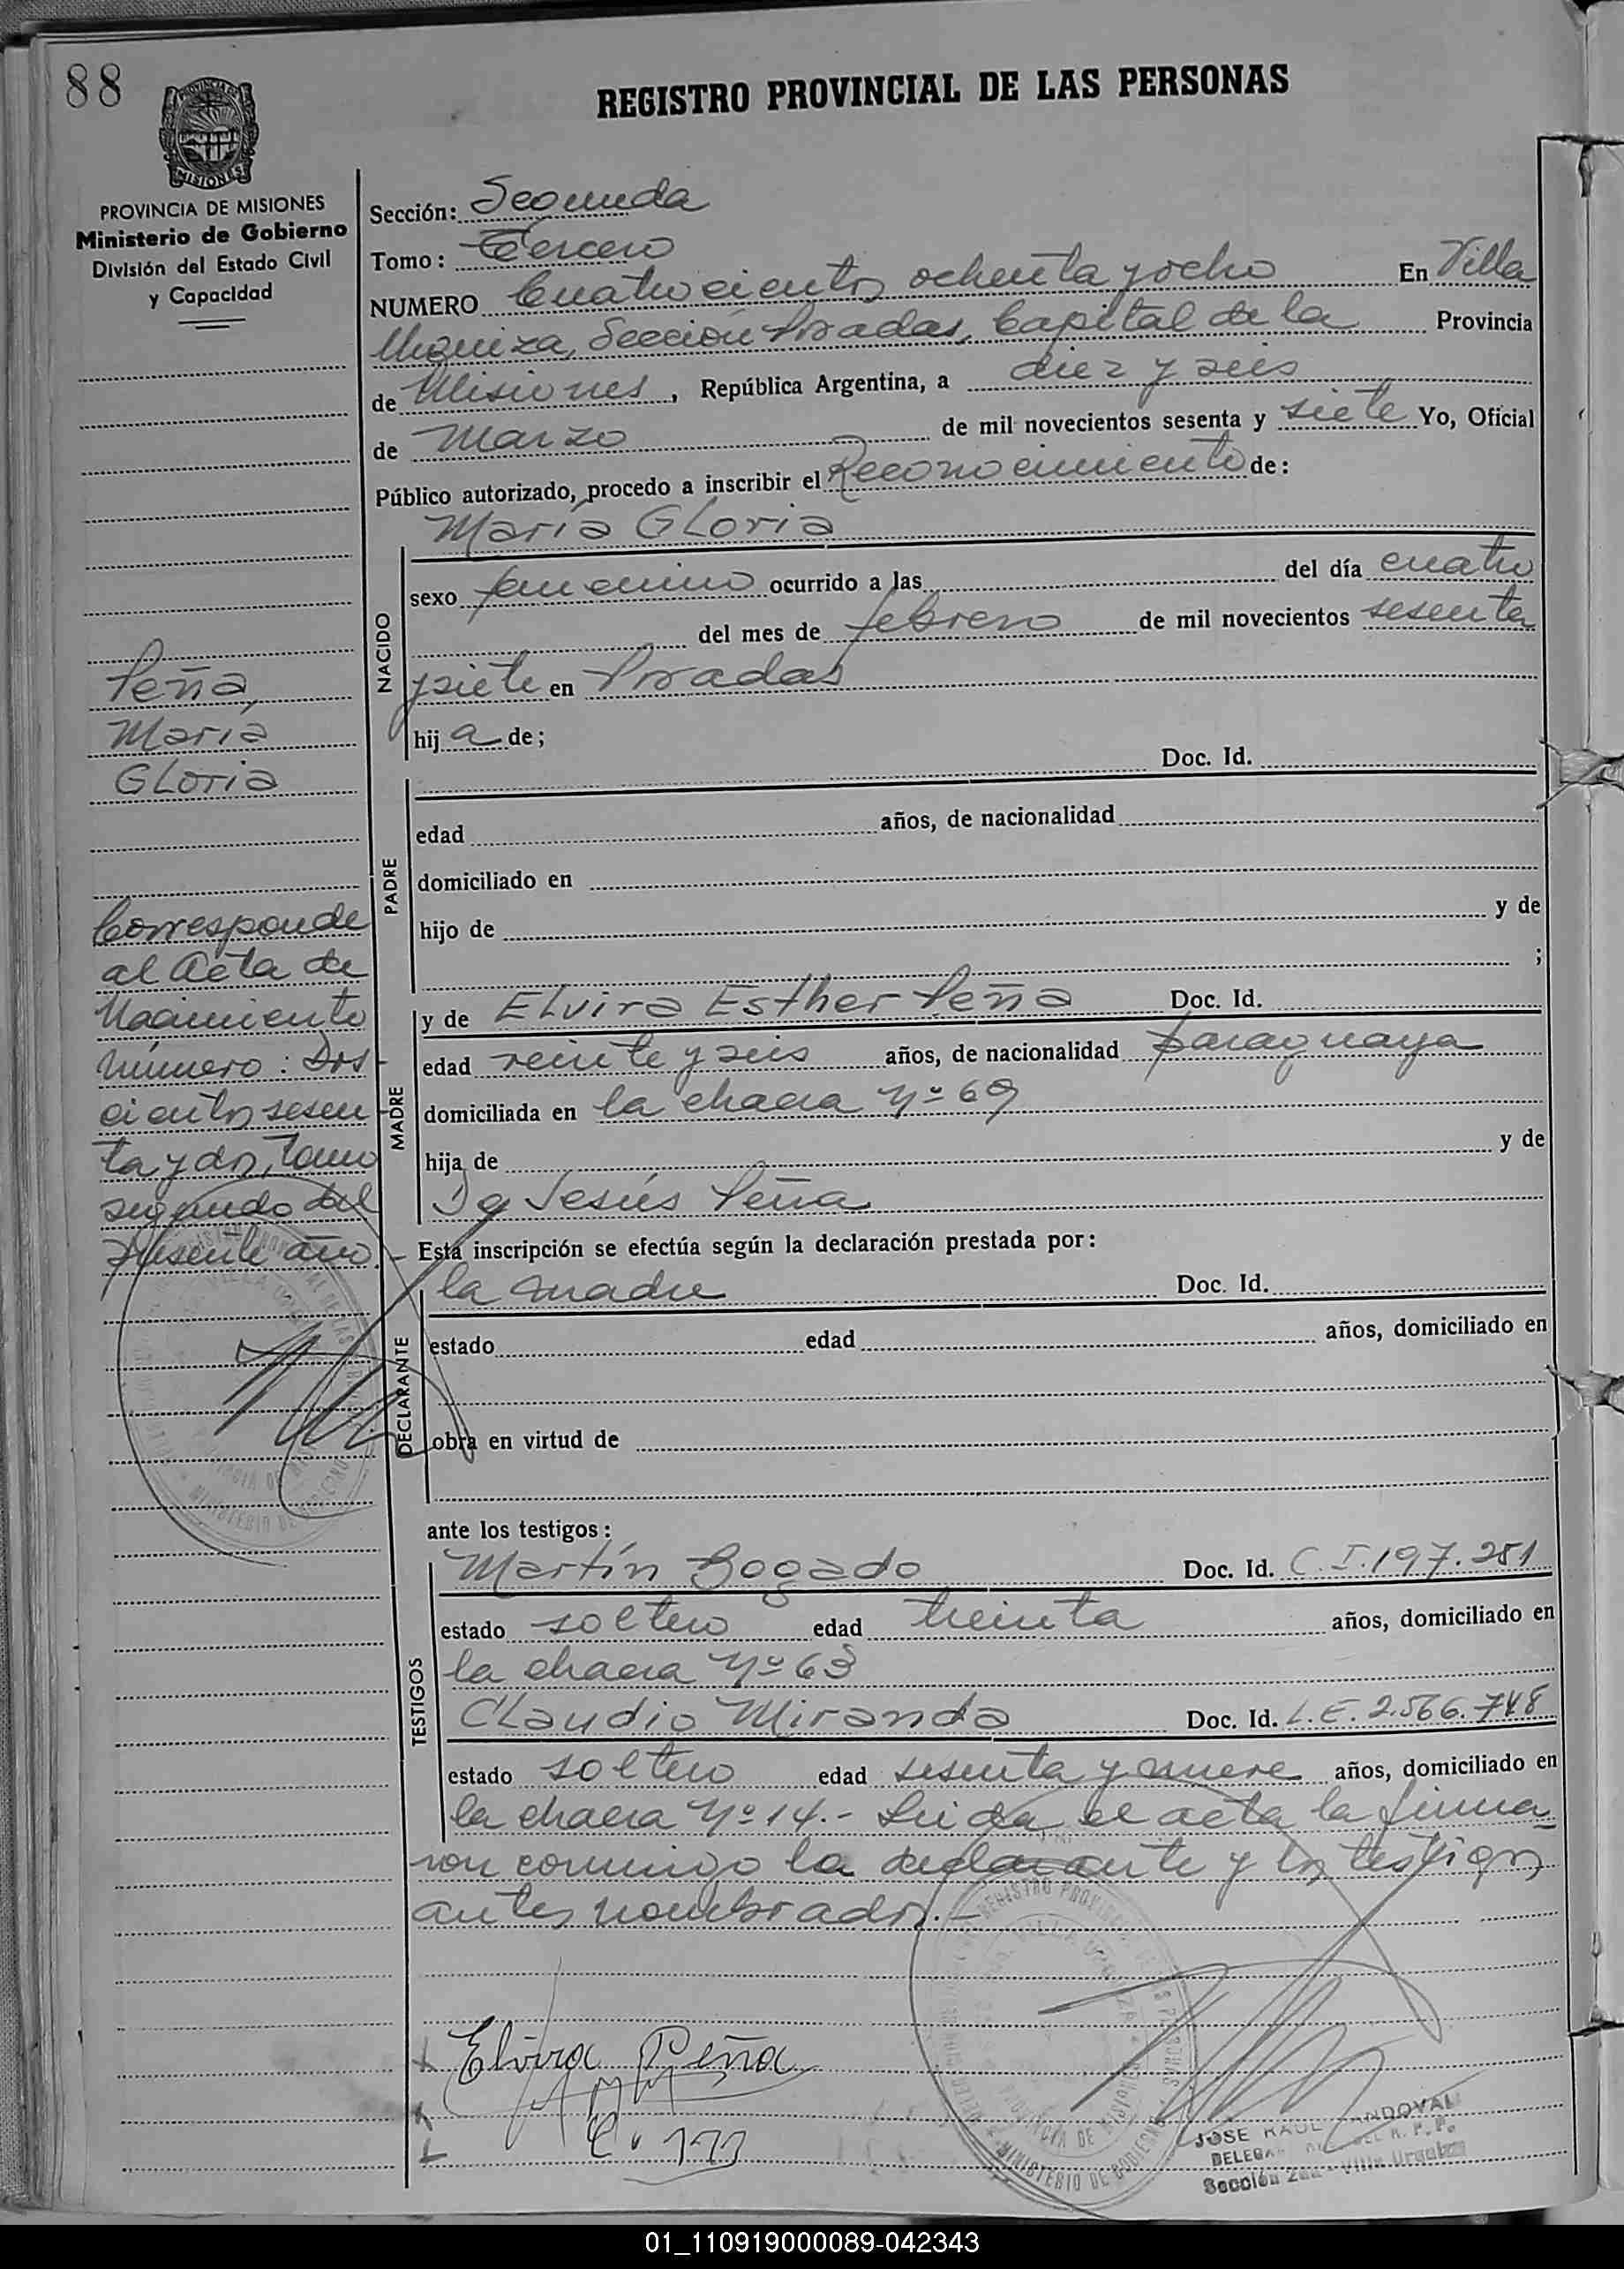 88
REGISTRO PROVINCIAL DE LAS PERSONAS
MISIONES
PROVINCIA DE MISIONES
Ministerio de Gobierno
División del Estado Civil
y Capacidad
Sección: Segunda
Tomo: Tercero
NUMERO Cuatrocientos ochenta y ocho En Villa
Urquiza, Sección Posadas, Capital de la Provincia
de Misiones, República Argentina, a diez y seis
de Marzo de mil novecientos sesenta y siete Yo, Oficial
Público autorizado, procedo a inscribir el Reconocimiento de:
María Gloria
NACIDO
sexo femenino ocurrido a las del día cuatro
del mes de febrero de mil novecientos sesenta
y siete en Posadas
hij a de;
Doc. Id.
PADRE
edad años, de nacionalidad
domiciliado en
hijo de y de
;
MADRE
y de Elvira Esther Peña Doc. Id.
edad veinte y seis años, de nacionalidad paraguaya
domiciliada en la chacra Nº 69
hija de y de
Dª Jesús Peña
Esta inscripción se efectúa según la declaración prestada por:
DECLARANTE
la madre Doc. Id.
estado edad años, domiciliado en
obra en virtud de
ante los testigos:
TESTIGOS
Martín Bogado Doc. Id. C.I. 197.251
estado soltero edad treinta años, domiciliado en
la chacra Nº 63
Claudio Miranda Doc. Id. L.E. 2.566.748
estado soltero edad sesenta y nueve años, domiciliado en
la chacra Nº 14.- Leída el acta la firma
ron conmigo la declarante y los testigos
antes nombrados.-
Peña,
María
Gloria
Corresponde
al Acta de
Nacimiento
número: Dos-
cientos sesen-
ta y dos, Tomo
segundo del
presente año.-
Elvira Peña
JOSE RAUL SANDOVAL
Sección 2da - Villa Urquiza
01_110919000089-042343